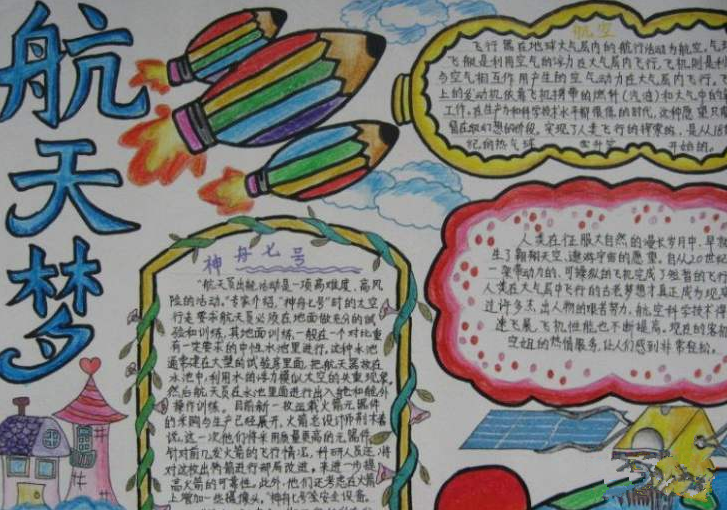 航天梦
航空
飞行器在地球大气层内的航行活动为航空,气
飞艇是利用空气的浮力在大气层内飞行,飞机则是利
与空气相互作用产生的空气动力在大气层内飞行。
上的发动机依靠飞机携带的燃料(汽油)和大气中的
工作。在生产力和科学技术水平都很低的时代,这种愿望只
留在幻想的阶段。实现了人类飞行的 是从18
纪的热气球 开始的。
人类在征服大自然的漫长岁月中,早
生了翱翔天空,遨游宇宙的愿望。自从20世纪
一架带动力的,可操纵的飞机完成了短暂的飞
人类在大气层中飞行的古老梦想才真正成为现
过许多杰出人物的艰苦努力,航空科学技术得
速飞展,飞机性能也不断提高。现在的客机
空姐的热情服务,让人们感到非常轻松。
神舟七号
“航天员出舱活动是一项高难度、高风
险的活动。”专家介绍,“神舟七号”时的太空
行走要求航天员必须在地面做充分的试
验和训练。其地面训练一般在一个对比重
有一定要求的中性水池里进行。这种水池
通常建在大型的试验房里面,把航天器放在
水池中,利用水的浮力模拟太空的失重现象,
然后航天员在水池里面进行出入舱和舱外
操作训练。目前新一枚运载火箭元器件
的采购与生产已经展开。火箭总设计师荆木春
说,这一次他们将采用质量更高的元器件。
针对前几发火箭的飞行情况,科研人员还将
对这枚火箭进行局部改进,来进一步提
高火箭的可靠性。此外,他们还考虑在火箭
上增加一些摄像头,“神舟七号”安设备。